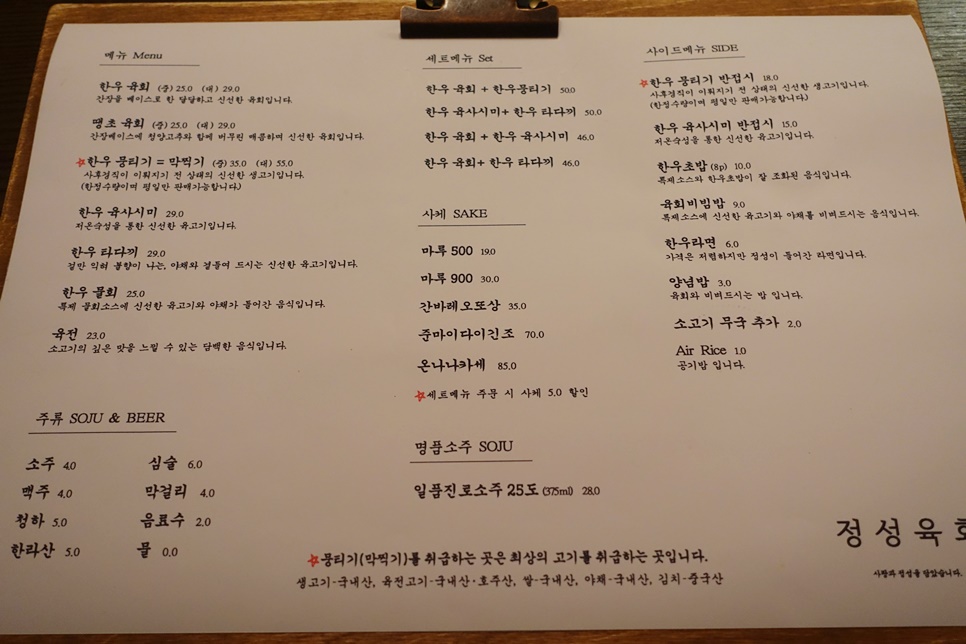 메뉴 Menu
한우 육회 (중) 25.0 (대) 29.0
간장을 베이스로 한 달달하고 신선한 육회입니다.
땡초 육회 (중) 25.0 (대) 29.0
간장베이스에 청양고추와 함께 버무린 매콤하며 신선한 육회입니다.
☆한우 뭉티기 = 막찍기 (중) 35.0 (대) 55.0
사후경직이 이뤄지기 전 상태의 신선한 생고기입니다.
(한정수량이며 평일만 판매가능합니다.)
한우 육사시미 29.0
저온숙성을 통한 신선한 육고기입니다.
한우 타다끼 29.0
겉만 익혀 불향이 나는, 야채와 곁들여 드시는 신선한 육고기입니다.
한우 물회 25.0
특제 물회소스에 신선한 육고기와 야채가 들어간 음식입니다.
육전 23.0
소고기의 깊은 맛을 느낄 수 있는 담백한 음식입니다.
주류 SOJU & BEER
소주 4.0 심술 6.0
맥주 4.0 막걸리 4.0
청하 5.0 음료수 2.0
한라산 5.0 물 0.0
세트메뉴 Set
한우 육회 + 한우뭉티기 50.0
한우 육사시미+ 한우 타다끼 50.0
한우 육회 + 한우 육사시미 46.0
한우 육회+ 한우 타다끼 46.0
사케 SAKE
마루 500 19.0
마루 900 30.0
간바레 오또상 35.0
준마이다이긴조 70.0
온나나카세 85.0
☆세트메뉴 주문 시 사케 5.0 할인
명품소주 SOJU
일품진로소주 25도 (375ml) 28.0
사이드메뉴 SIDE
☆한우 뭉티기 반접시 18.0
사후경직이 이뤄지기 전 상태의 신선한 생고기입니다.
(한정수량이며 평일만 판매가능합니다)
한우 육사시미 반접시 15.0
저온숙성을 통한 신선한 육고기입니다.
한우초밥 (8p) 10.0
특제소스와 한우초밥이 잘 조화된 음식입니다.
육회비빔밥 9.0
특제소스에 신선한 육고기와 야채를 비벼드시는 음식입니다.
한우라면 6.0
가격은 저렴하지만 정성이 들어간 라면입니다.
양념밥 3.0
육회와 비벼드시는 밥 입니다.
소고기 무국 추가 2.0
Air Rice 1.0
공기밥 입니다.
☆뭉티기(막찍기)를 취급하는 곳은 최상의 고기를 취급하는 곳입니다.
생고기-국내산, 육전고기-국내산·호주산, 쌀-국내산, 야채-국내산, 김치-중국산
정성육회
사랑과 정성을 담았습니다.